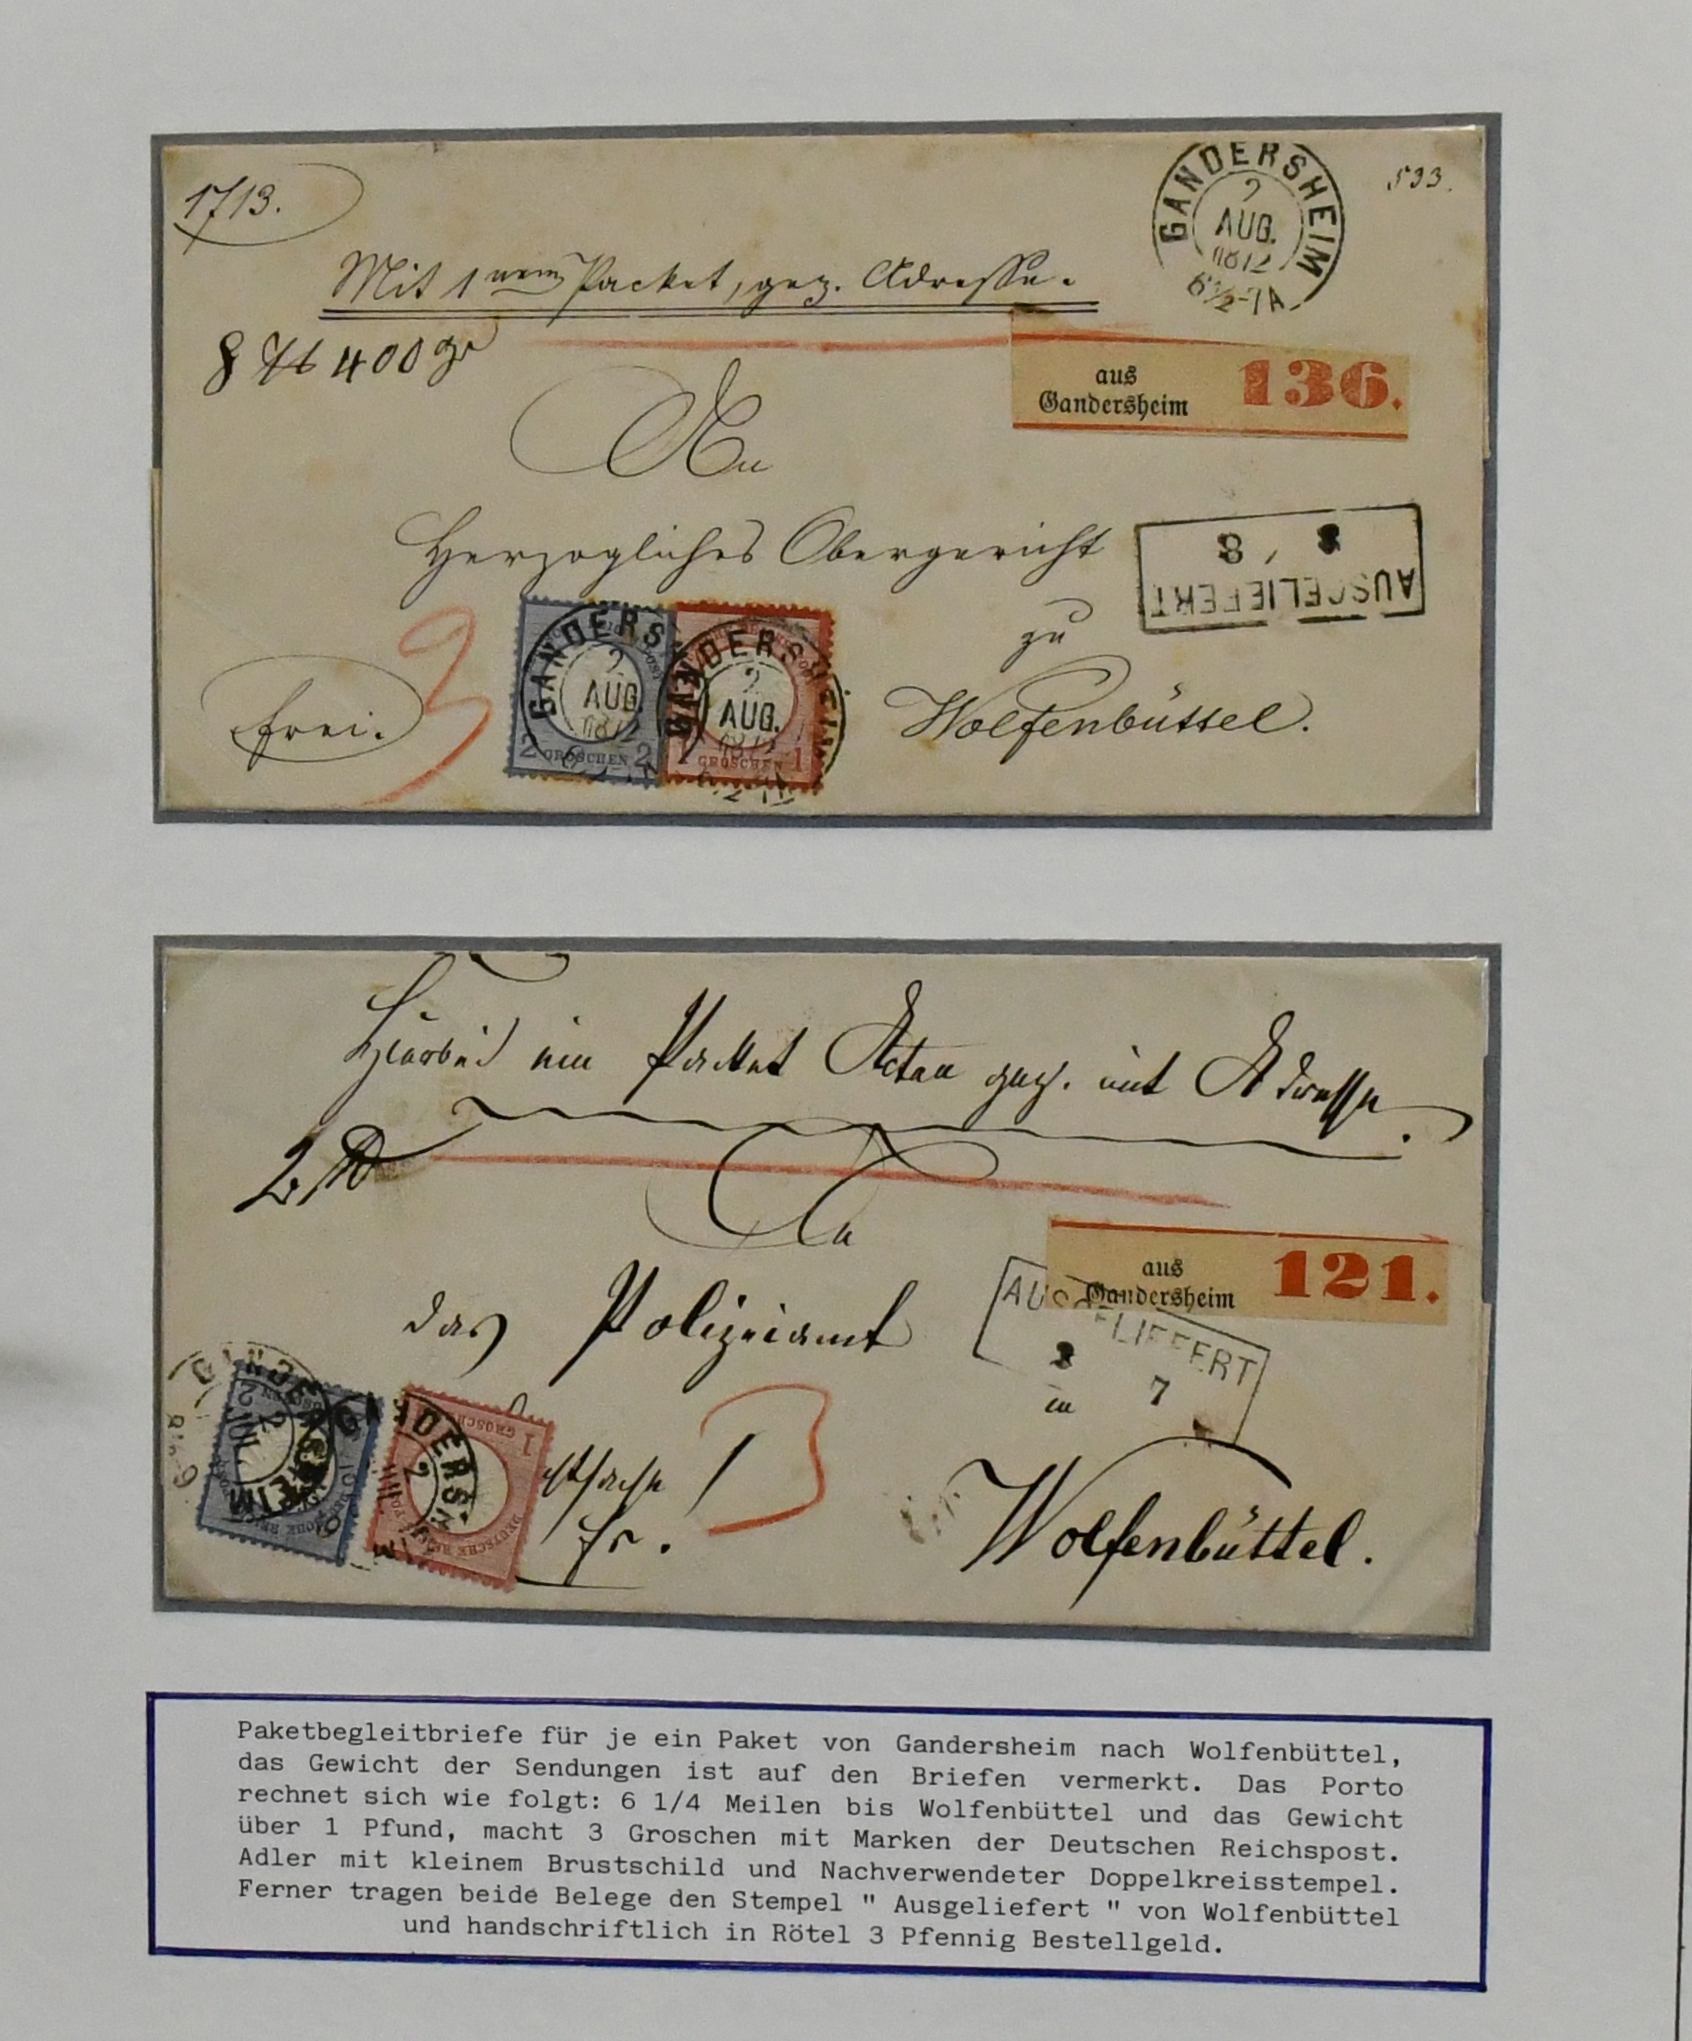 1713.
GANDERSHEIM
2
AUG.
1872
6½-7A
533.
Mit 1 nem Packet, gez. Adresse.
8 ℔ 400 gr
aus
Gandersheim
136.
An
Herzogliches Obergericht
AUSGELIEFERT
8
zu
Wolfenbüssel.
frei.
3
GANDERS
2
AUG.
1872
2 GROSCHEN 2
GANDERSHEIM
2
AUG.
1872
1 GROSCHEN 1
Hierbei ein Packet Acten gez. mit Adresse.
2 ℔
An
aus
Gandersheim
121.
das Polizeiamt
AUSGELIEFERT
3 7
in
GANDERSHEIM
2
JUL
2
GANDERSH
2
1 GROSCHEN
DEUTSCHE REICHS
3
fr.
Wolfenbüttel.
Paketbegleitbriefe für je ein Paket von Gandersheim nach Wolfenbüttel,
das Gewicht der Sendungen ist auf den Briefen vermerkt. Das Porto
rechnet sich wie folgt: 6 1/4 Meilen bis Wolfenbüttel und das Gewicht
über 1 Pfund, macht 3 Groschen mit Marken der Deutschen Reichspost.
Adler mit kleinem Brustschild und Nachverwendeter Doppelkreisstempel.
Ferner tragen beide Belege den Stempel " Ausgeliefert " von Wolfenbüttel
und handschriftlich in Rötel 3 Pfennig Bestellgeld.